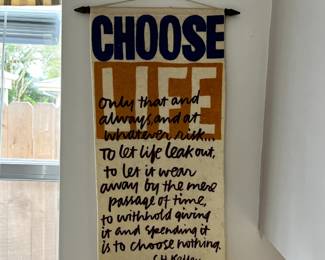 CHOOSE
LIFE
Only that and
always, and at
whatever risk...
To let life leak out,
to let it wear
away by the mere
passage of time,
to withhold giving
it and spending it
is to choose nothing.